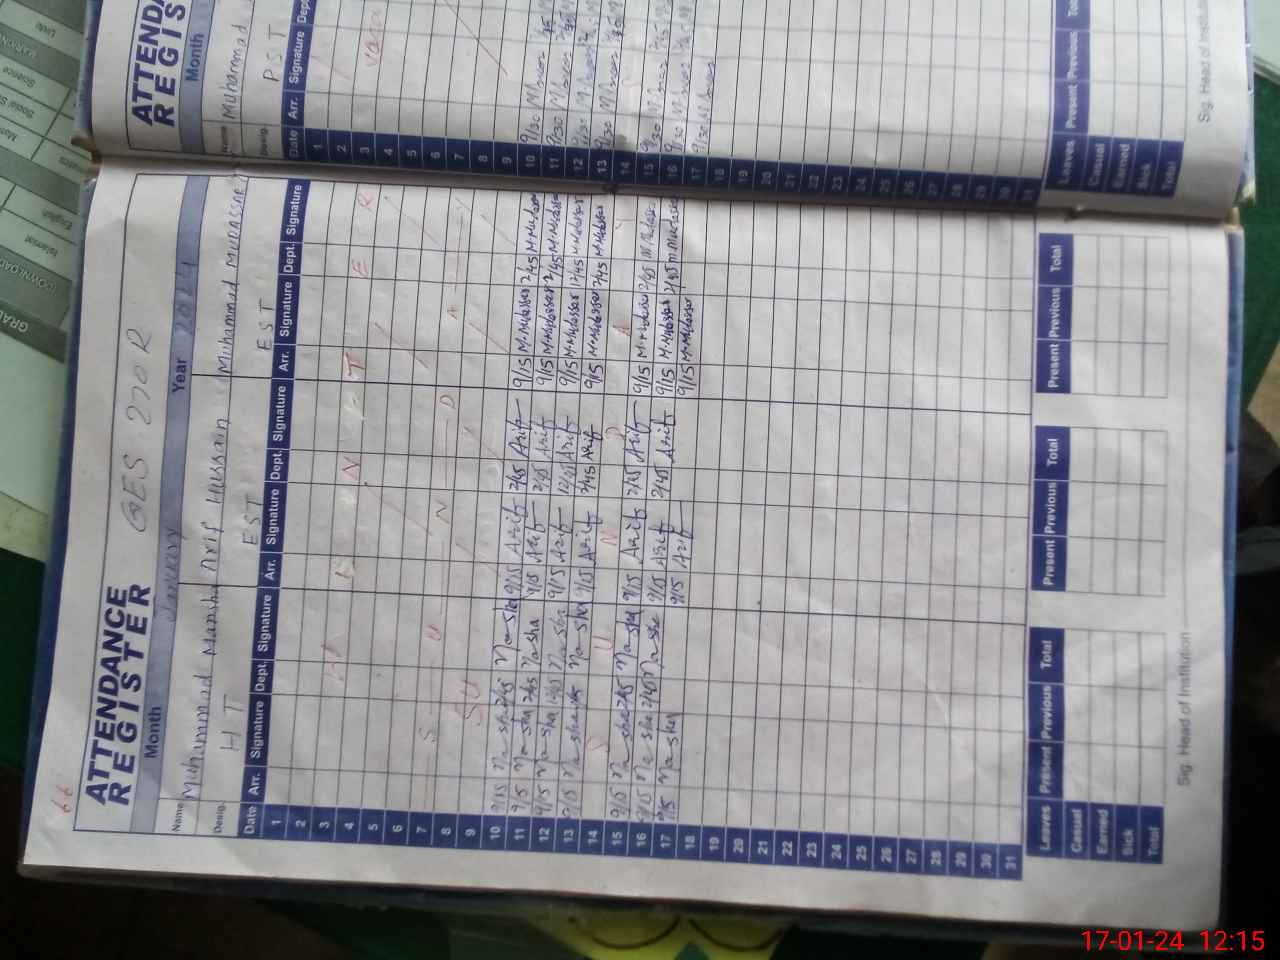 66
ATTENDANCE
REGISTER
GES 270 R
Month January Year
Name Muhammad Mansha Arif Hussain Muhammad MUDASSAR
Desig. HT EST EST
Date Arr. Signature Dept. Signature Arr. Signature Dept. Signature Arr. Signature Dept. Signature
1
2
3
4 W I N T E R
5
6
7 S U N D A Y
8
9
10 9/15 Mansha 2/45 Mansha 9/15 Arif 2/45 Arif 9/15 M.Mudassar 2/45 M.Mudassar
11 9/15 Mansha 2/45 Mansha 9/15 Arif 2/45 Arif 9/15 M.Mudassar 2/45 M.Mudassar
12 9/15 Mansha 12/45 Mansha 9/15 Arif 12/45 Arif 9/15 M.Mudassar 12/45 M.Mudassar
13 9/15 Mansha Mansha 9/15 Arif 2/45 Arif 9/15 M.Mudassar 2/45 M.Mudassar
14 S U N D A Y
15 9/15 Mansha 2/45 Mansha 9/15 Arif 2/45 Arif 9/15 M.Mudassar 2/45 M.Mudassar
16 9/15 Mansha 2/45 Mansha 9/15 Arif 2/45 Arif 9/15 M.Mudassar 2/45 M.Mudassar
17 9/15 Mansha 9/15 Arif 9/15 M.Mudassar
18
19
20
21
22
23
24
25
26
27
28
29
30
31
Leaves Present Previous Total Present Previous Total Present Previous Total
Casual
Earned
Sick
Total
Sig. Head of Institution
ATTENDA
REGIS
Month
Name Muhammad
Desig. PST
Date Arr. Signature Dep
1
2
3
4
5
6
7
8
9
10 9/30
11 9/30
12 9/30
13 9/30
14
15 9/30
16 9/30
17 9/30
18
19
20
21
22
23
24
25
26
27
28
29
30
31
Leaves Present Previous To
Casual
Earned
Sick
Total
Sig. Head of Institution
GRAD
(DOWNLOAD
Islamiat
English
Science
17-01-24 12:15